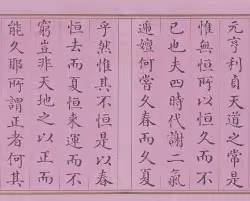 元亨利貞天道之常是
惟無恒所以恒久而不
已也夫四時代謝二氣
遞嬗何嘗久春而久夏
乎然惟其不恒是以春
恒去而夏恒來運而不
窮豈非天地之以正而
能久耶所謂正者何其